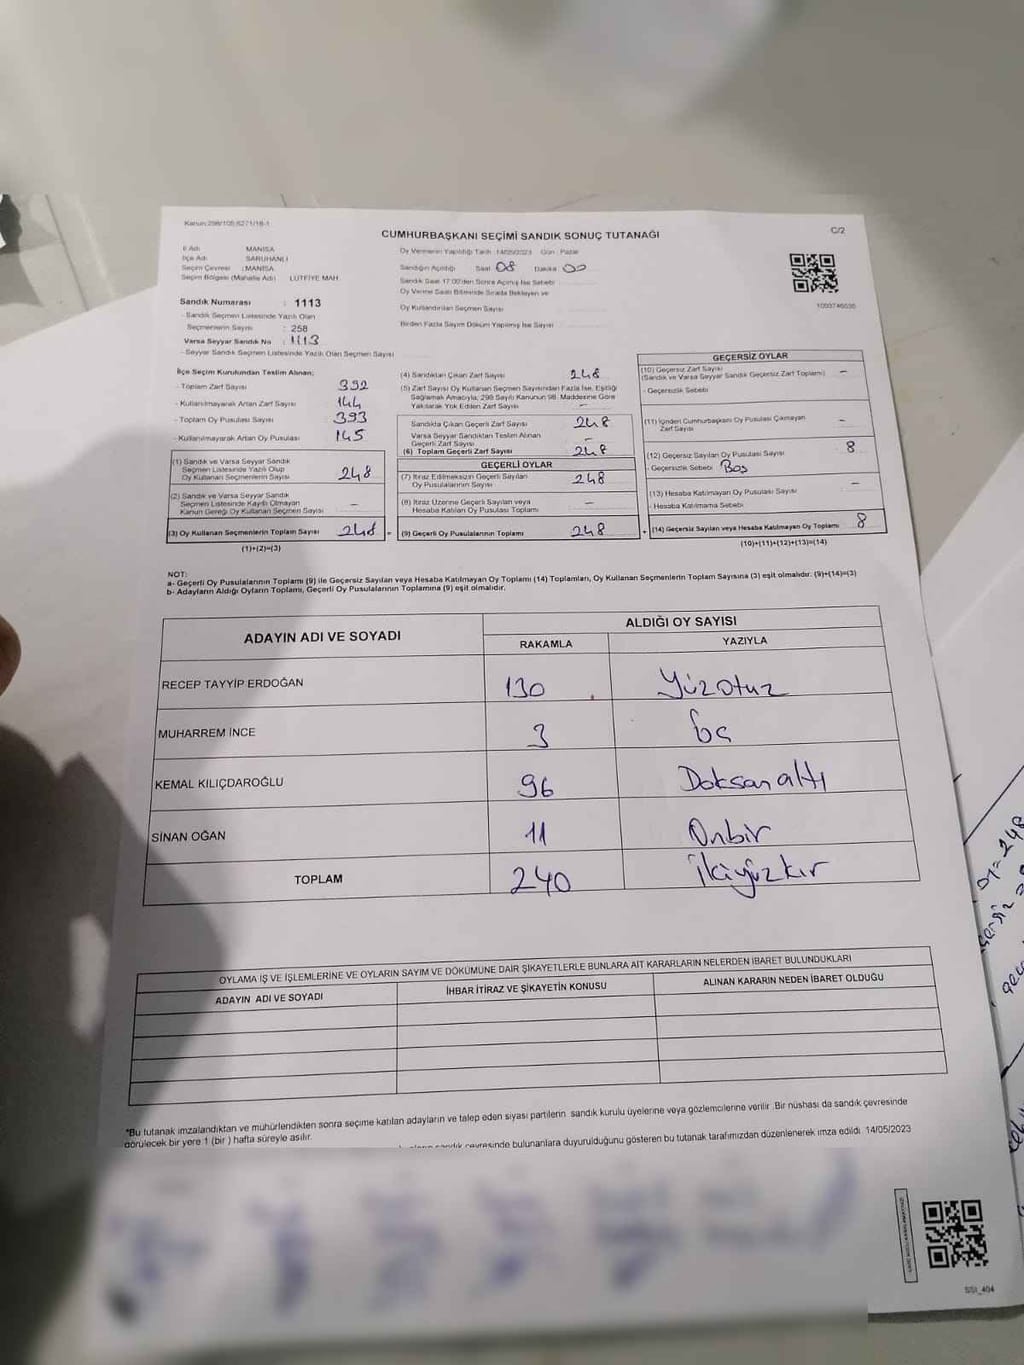 Kanun:298/105;6271/18-1
CUMHURBAŞKANI SEÇİMİ SANDIK SONUÇ TUTANAĞI
C/2
İl Adı : MANİSA
İlçe Adı : SARUHANLI
Seçim Çevresi : MANİSA
Seçim Bölgesi (Mahalle Adı) : LÜTFİYE MAH.
Sandık Numarası : 1113
- Sandık Seçmen Listesinde Yazılı Olan
Seçmenlerin Sayısı : 258
Varsa Seyyar Sandık No : 1113
- Seyyar Sandık Seçmen Listesinde Yazılı Olan Seçmen Sayısı
Oy Vermenin Yapıldığı Tarih : 14/05/2023 Gün : Pazar
Sandığın Açıldığı Saat 08 Dakika 00
Sandık Saat 17:00'den Sonra Açılmış İse Sebebi
Oy Verme Saati Bitiminde Sırada Bekleyen ve
Oy Kullandırılan Seçmen Sayısı
Birden Fazla Sayım Döküm Yapılmış İse Sayısı
İlçe Seçim Kurulundan Teslim Alınan;
- Toplam Zarf Sayısı 392
- Kullanılmayarak Artan Zarf Sayısı 144
- Toplam Oy Pusulası Sayısı 393
- Kullanılmayarak Artan Oy Pusulası 145
(1) Sandık ve Varsa Seyyar Sandık
Seçmen Listesinde Yazılı Olup
Oy Kullanan Seçmenlerin Sayısı 248
(2) Sandık ve Varsa Seyyar Sandık
Seçmen Listesinde Kayıtlı Olmayan
Kanun Gereği Oy Kullanan Seçmen Sayısı –
(3) Oy Kullanan Seçmenlerin Toplam Sayısı 248 =
(1)+(2)=(3)
(4) Sandıktan Çıkan Zarf Sayısı 248
(5) Zarf Sayısı Oy Kullanan Seçmen Sayısından Fazla İse, Eşitliği
Sağlamak Amacıyla, 298 Sayılı Kanunun 98. Maddesine Göre
Yakılarak Yok Edilen Zarf Sayısı –
Sandıkta Çıkan Geçerli Zarf Sayısı 248
Varsa Seyyar Sandıktan Teslim Alınan
Geçerli Zarf Sayısı –
(6) Toplam Geçerli Zarf Sayısı 248
GEÇERLİ OYLAR
(7) İtiraz Edilmeksizin Geçerli Sayılan
Oy Pusulalarının Sayısı 248
(8) İtiraz Üzerine Geçerli Sayılan veya
Hesaba Katılan Oy Pusulası Toplamı –
(9) Geçerli Oy Pusulalarının Toplamı 248 +
1003746535
GEÇERSİZ OYLAR
(10) Geçersiz Zarf Sayısı
(Sandık ve Varsa Seyyar Sandık Geçersiz Zarf Toplamı) –
- Geçersizlik Sebebi
(11) İçinden Cumhurbaşkanı Oy Pusulası Çıkmayan
Zarf Sayısı –
(12) Geçersiz Sayılan Oy Pusulası Sayısı 8
- Geçersizlik Sebebi Boş
(13) Hesaba Katılmayan Oy Pusulası Sayısı –
- Hesaba Katılmama Sebebi
(14) Geçersiz Sayılan veya Hesaba Katılmayan Oy Toplamı 8
(10)+(11)+(12)+(13)=(14)
NOT:
a- Geçerli Oy Pusulalarının Toplamı (9) ile Geçersiz Sayılan veya Hesaba Katılmayan Oy Toplamı (14) Toplamları, Oy Kullanan Seçmenlerin Toplam Sayısına (3) eşit olmalıdır. (9)+(14)=(3)
b- Adayların Aldığı Oyların Toplamı, Geçerli Oy Pusulalarının Toplamına (9) eşit olmalıdır.
ADAYIN ADI VE SOYADI
ALDIĞI OY SAYISI
RAKAMLA YAZIYLA
RECEP TAYYİP ERDOĞAN 130 Yüzotuz
MUHARREM İNCE 3 Üç
KEMAL KILIÇDAROĞLU 96 Doksan altı
SİNAN OĞAN 11 Onbir
TOPLAM 240 ikiyüzkır
OYLAMA İŞ VE İŞLEMLERİNE VE OYLARIN SAYIM VE DÖKÜMÜNE DAİR ŞİKAYETLERLE BUNLARA AİT KARARLARIN NELERDEN İBARET BULUNDUKLARI
ADAYIN ADI VE SOYADI İHBAR İTİRAZ VE ŞİKAYETİN KONUSU ALINAN KARARIN NEDEN İBARET OLDUĞU
*Bu tutanak imzalandıktan ve mühürlendikten sonra seçime katılan adayların ve talep eden siyasi partilerin sandık kurulu üyelerine veya gözlemcilerine verilir. Bir nüshası da sandık çevresinde
görülecek bir yere 1 (bir) hafta süreyle asılır.
sandık çevresinde bulunanlara duyurulduğunu gösteren bu tutanak tarafımızdan düzenlenerek imza edildi. 14/05/2023
SSI_404